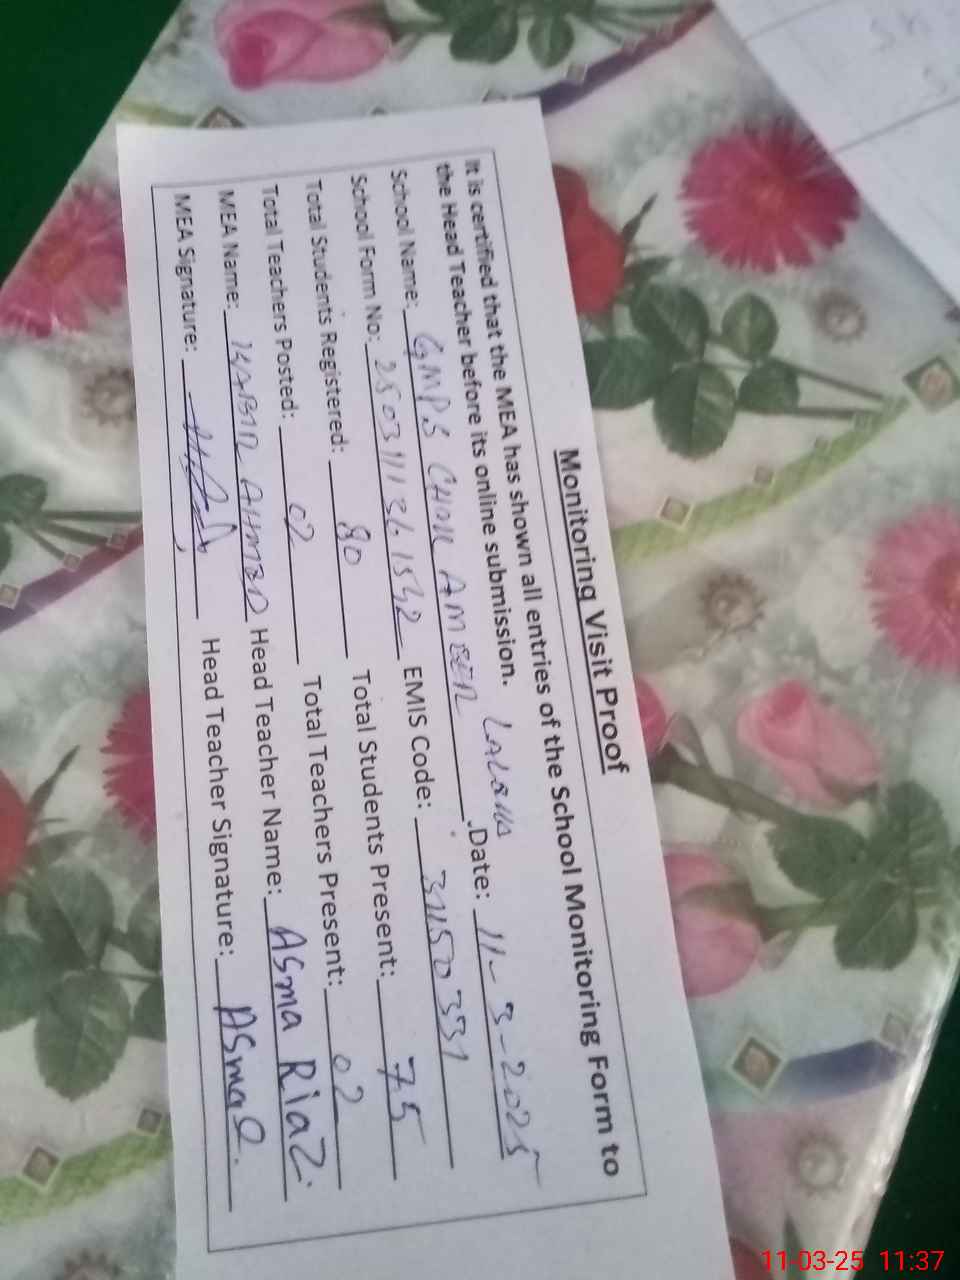 Monitoring Visit Proof
It is certified that the MEA has shown all entries of the School Monitoring Form to
the Head Teacher before its online submission.
School Name: GMPS CHOK AMEER .Date: 11-3-2025
School Form No: EMIS Code: 31150331
Total Students Registered: 80 Total Students Present: 75
Total Teachers Posted: 02 Total Teachers Present: 02
MEA Name: AHMAD Head Teacher Name: Asma Riaz.
MEA Signature: Head Teacher Signature: Asma
11-03-25 11:37